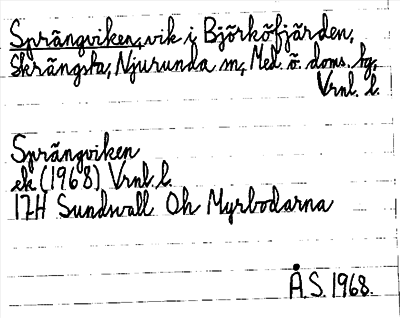 Sprängviken, vik i Björköfjärden,
Skrängsta, Njurunda sn, Med. ö. doms. hg,
Vrnl. l.
Sprängviken
ek (1968) Vrnl. l.
17H Sundsvall Oh Myrbodarna
Å.S. 1968.